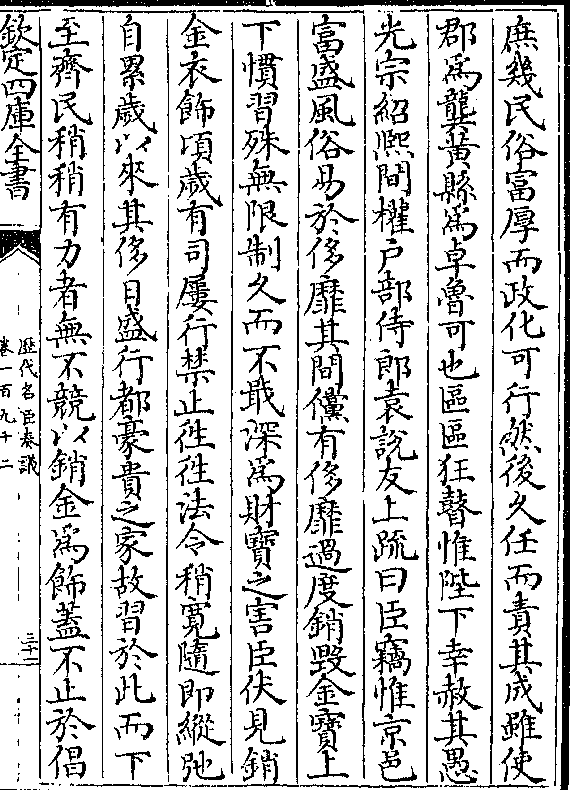 庶幾民俗富厚而政化可行然後久任而責其成雖使
郡為龔黄縣為卓魯可也區區狂瞽惟陛下幸赦其愚
光宗紹熙間權户部侍郎袁說友上疏曰臣竊惟京邑
富盛風俗易於侈靡其間儻有侈靡過度銷毁金寶上
下慣習殊無限制久而不戢深為財寶之害臣伏見銷
金衣飾頃歲有司屢行禁止徃徃法令稍寛隨即縱弛
自累歲以來其侈日盛行都豪貴之家故習於此而下
至齊民稍稍有力者無不競以銷金為飾蓋不止於倡
欽定四庫全書
歴代名臣奏議
卷一百九十二
三十二